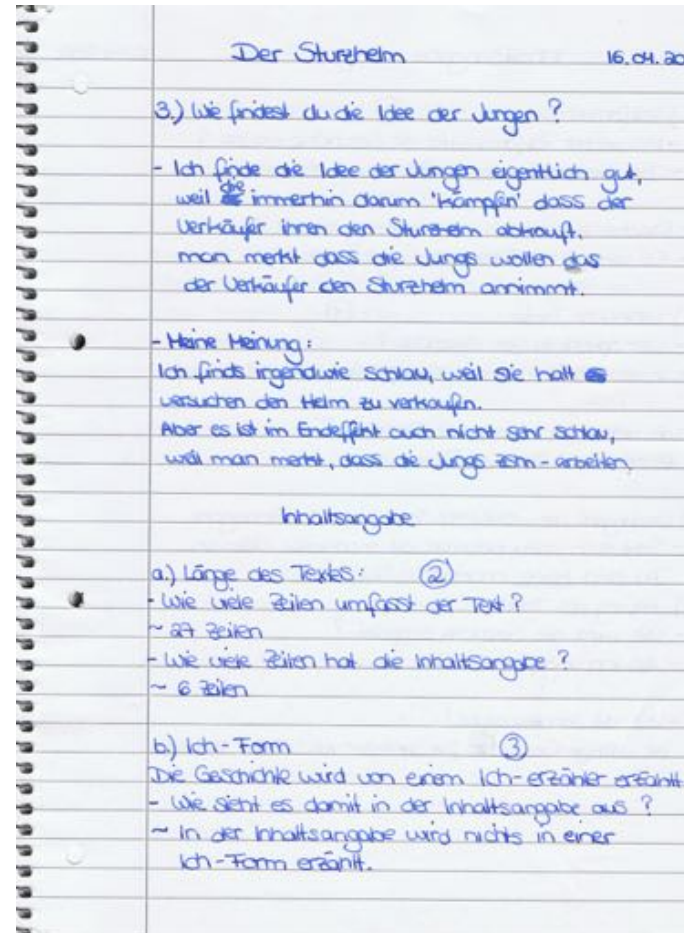 Der Sturzhelm 16.04.20
3.) Wie findest du die Idee der Jungen?
- Ich finde die Idee der Jungen eigentlich gut,
weil die immerhin darum 'kämpfen' dass der
Verkäufer ihnen den Sturzhelm abkauft.
man merkt dass die Jungs wollen das
der Verkäufer den Sturzhelm annimmt.
- Meine Meinung:
Ich finds irgendwie schlau, weil Sie halt
versuchen den Helm zu verkaufen.
Aber es ist im Endeffekt auch nicht sehr schlau,
weil man merkt, dass die Jungs zsm-arbeiten.
Inhaltsangabe
a.) Länge des Textes: 2
- Wie viele Zeilen umfasst der Text?
~ 27 Zeilen
- Wie viele Zeilen hat die Inhaltsangabe?
~ 6 Zeilen
b.) Ich-Form 3
Die Geschichte wird von einem Ich-erzähler erzählt
- Wie sieht es damit in der Inhaltsangabe aus?
~ In der Inhaltsangabe wird nichts in einer
Ich-Form erzählt.